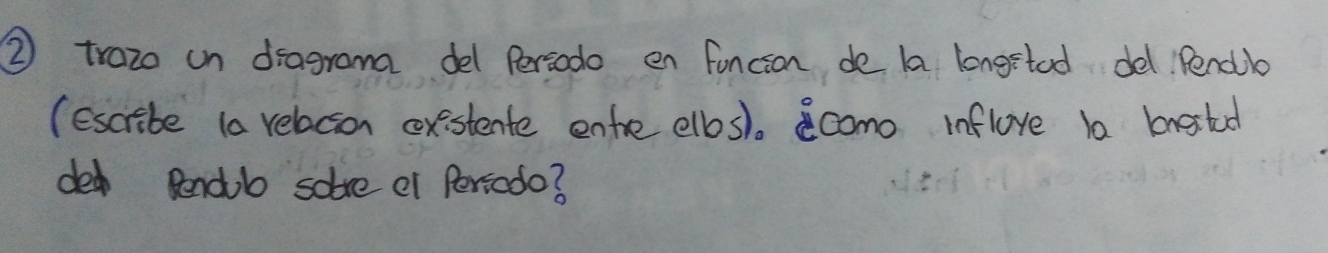 ② trazo un diagrama del Periodo en función de la longitud del Pendulo
(Escribe la relacion existente entre ellos). ¿como influye la longitud
del Pendulo sobre el Periodo?